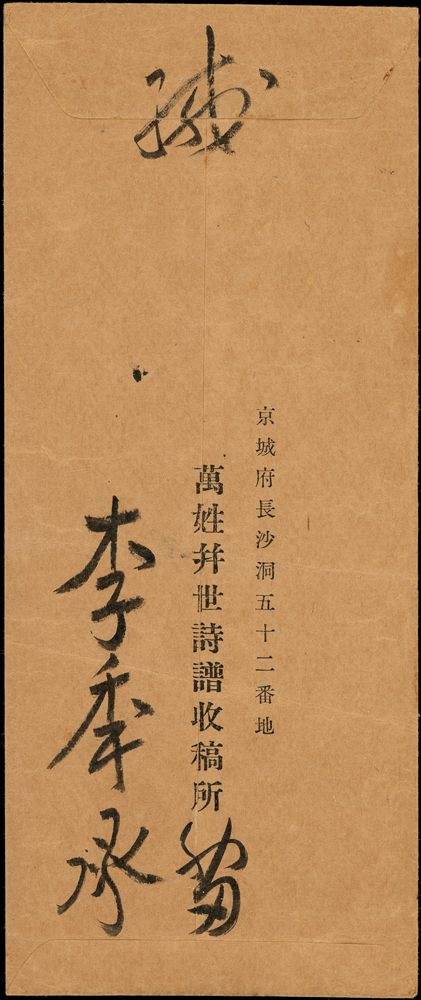 緘
京城府長沙洞五十二番地
萬姓幷世詩譜收稿所留
李季承